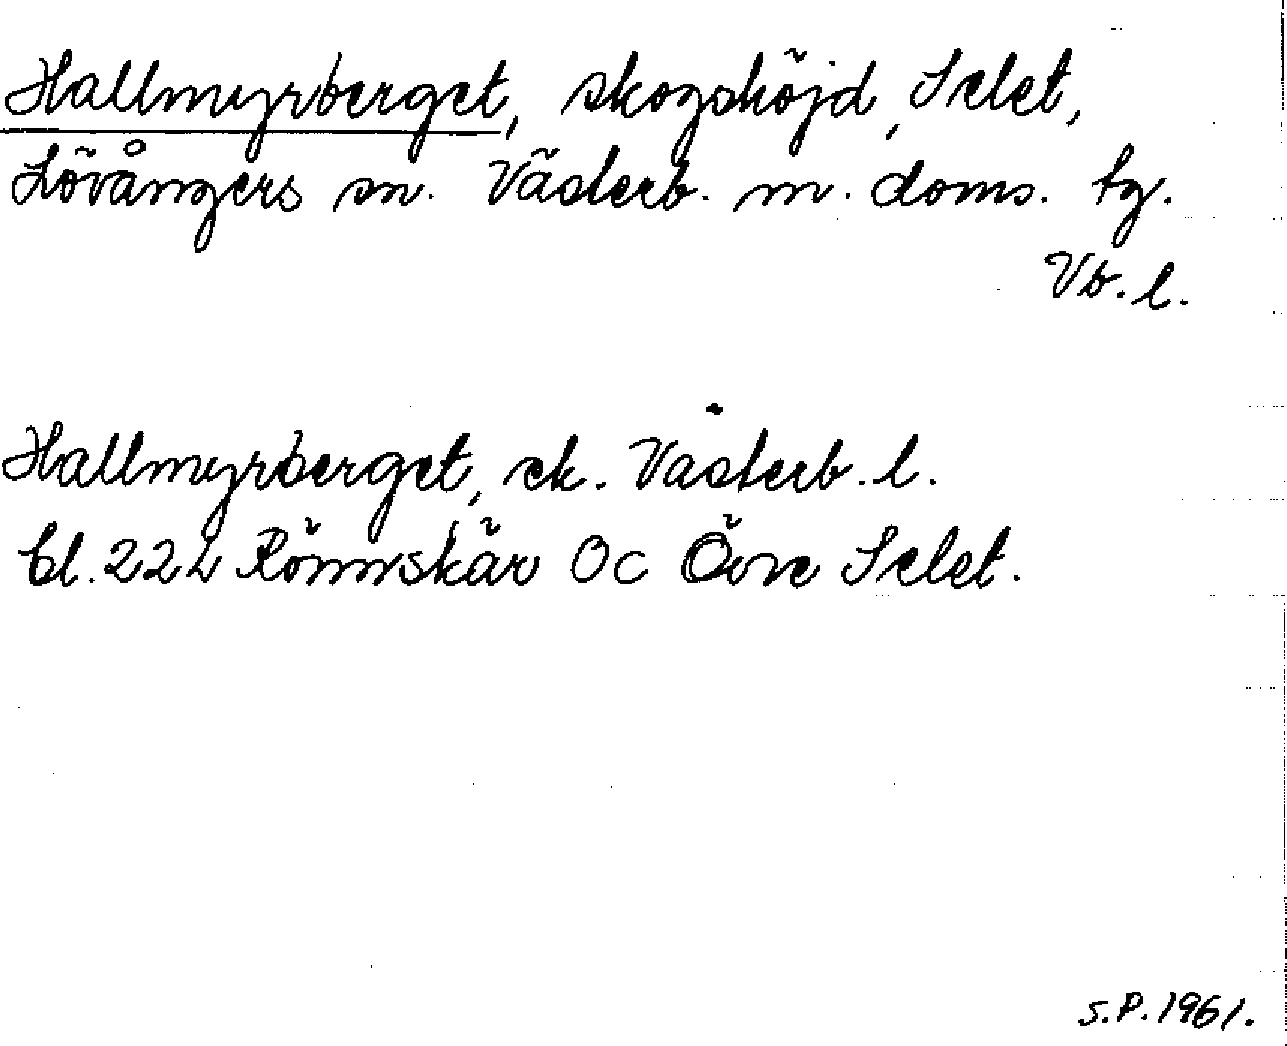 Hallmyrberget, skogshöjd, Selet,
Lövångers sn. Västerb. m. doms. tg.
Vb. l.
Hallmyrberget, ek. Västerb. l.
bl. 22 L Rönnskär Oc Övre Selet.
S.P. 1961.